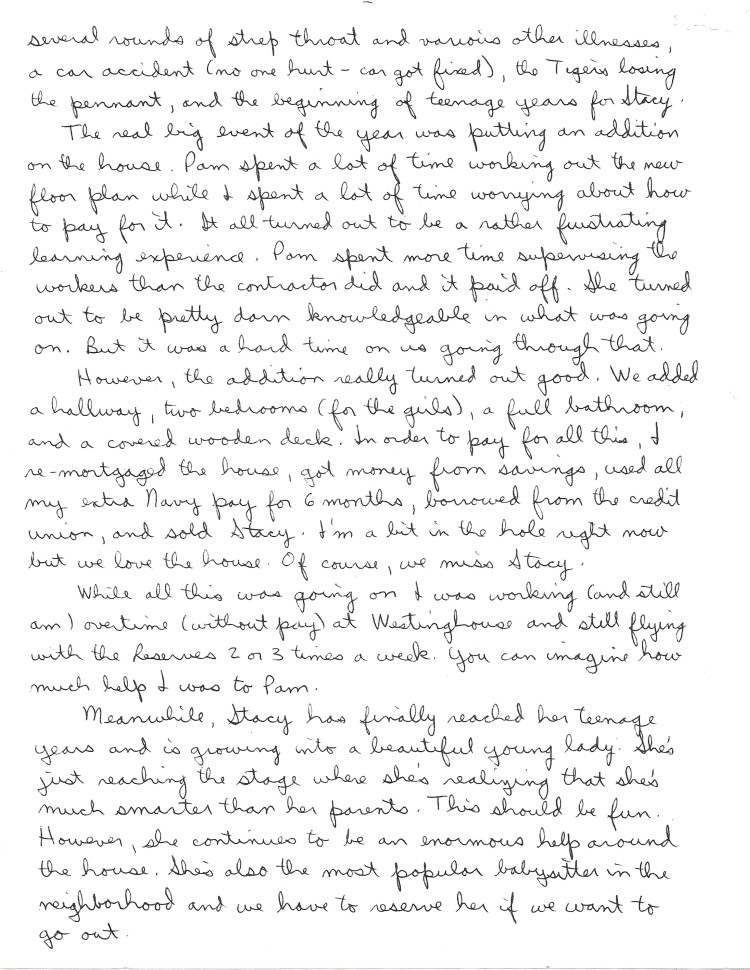 several rounds of strep throat and various other illnesses,
a car accident (no one hurt - car got fixed), the Tigers losing
the pennant, and the beginning of teenage years for Stacy.
The real big event of the year was putting an addition
on the house. Pam spent a lot of time working out the new
floor plan while I spent a lot of time worrying about how
to pay for it. It all turned out to be a rather frustrating
learning experience. Pam spent more time supervising the
workers than the contractor did and it paid off. She turned
out to be pretty darn knowledgeable in what was going
on. But it was a hard time on us going through that.
However, the addition really turned out good. We added
a hallway, two bedrooms (for the girls), a full bathroom,
and a covered wooden deck. In order to pay for all this, I
re-mortgaged the house, got money from savings, used all
my extra Navy pay for 6 months, borrowed from the credit
union, and sold Stacy. I'm a bit in the hole right now
but we love the house. Of course, we miss Stacy.
While all this was going on I was working (and still
am) overtime (without pay) at Westinghouse and still flying
with the Reserves 2 or 3 times a week. You can imagine how
much help I was to Pam.
Meanwhile, Stacy has finally reached her teenage
years and is growing into a beautiful young lady. She's
just reaching the stage where she's realizing that she's
much smarter than her parents. This should be fun.
However, she continues to be an enormous help around
the house. She's also the most popular babysitter in the
neighborhood and we have to reserve her if we want to
go out.